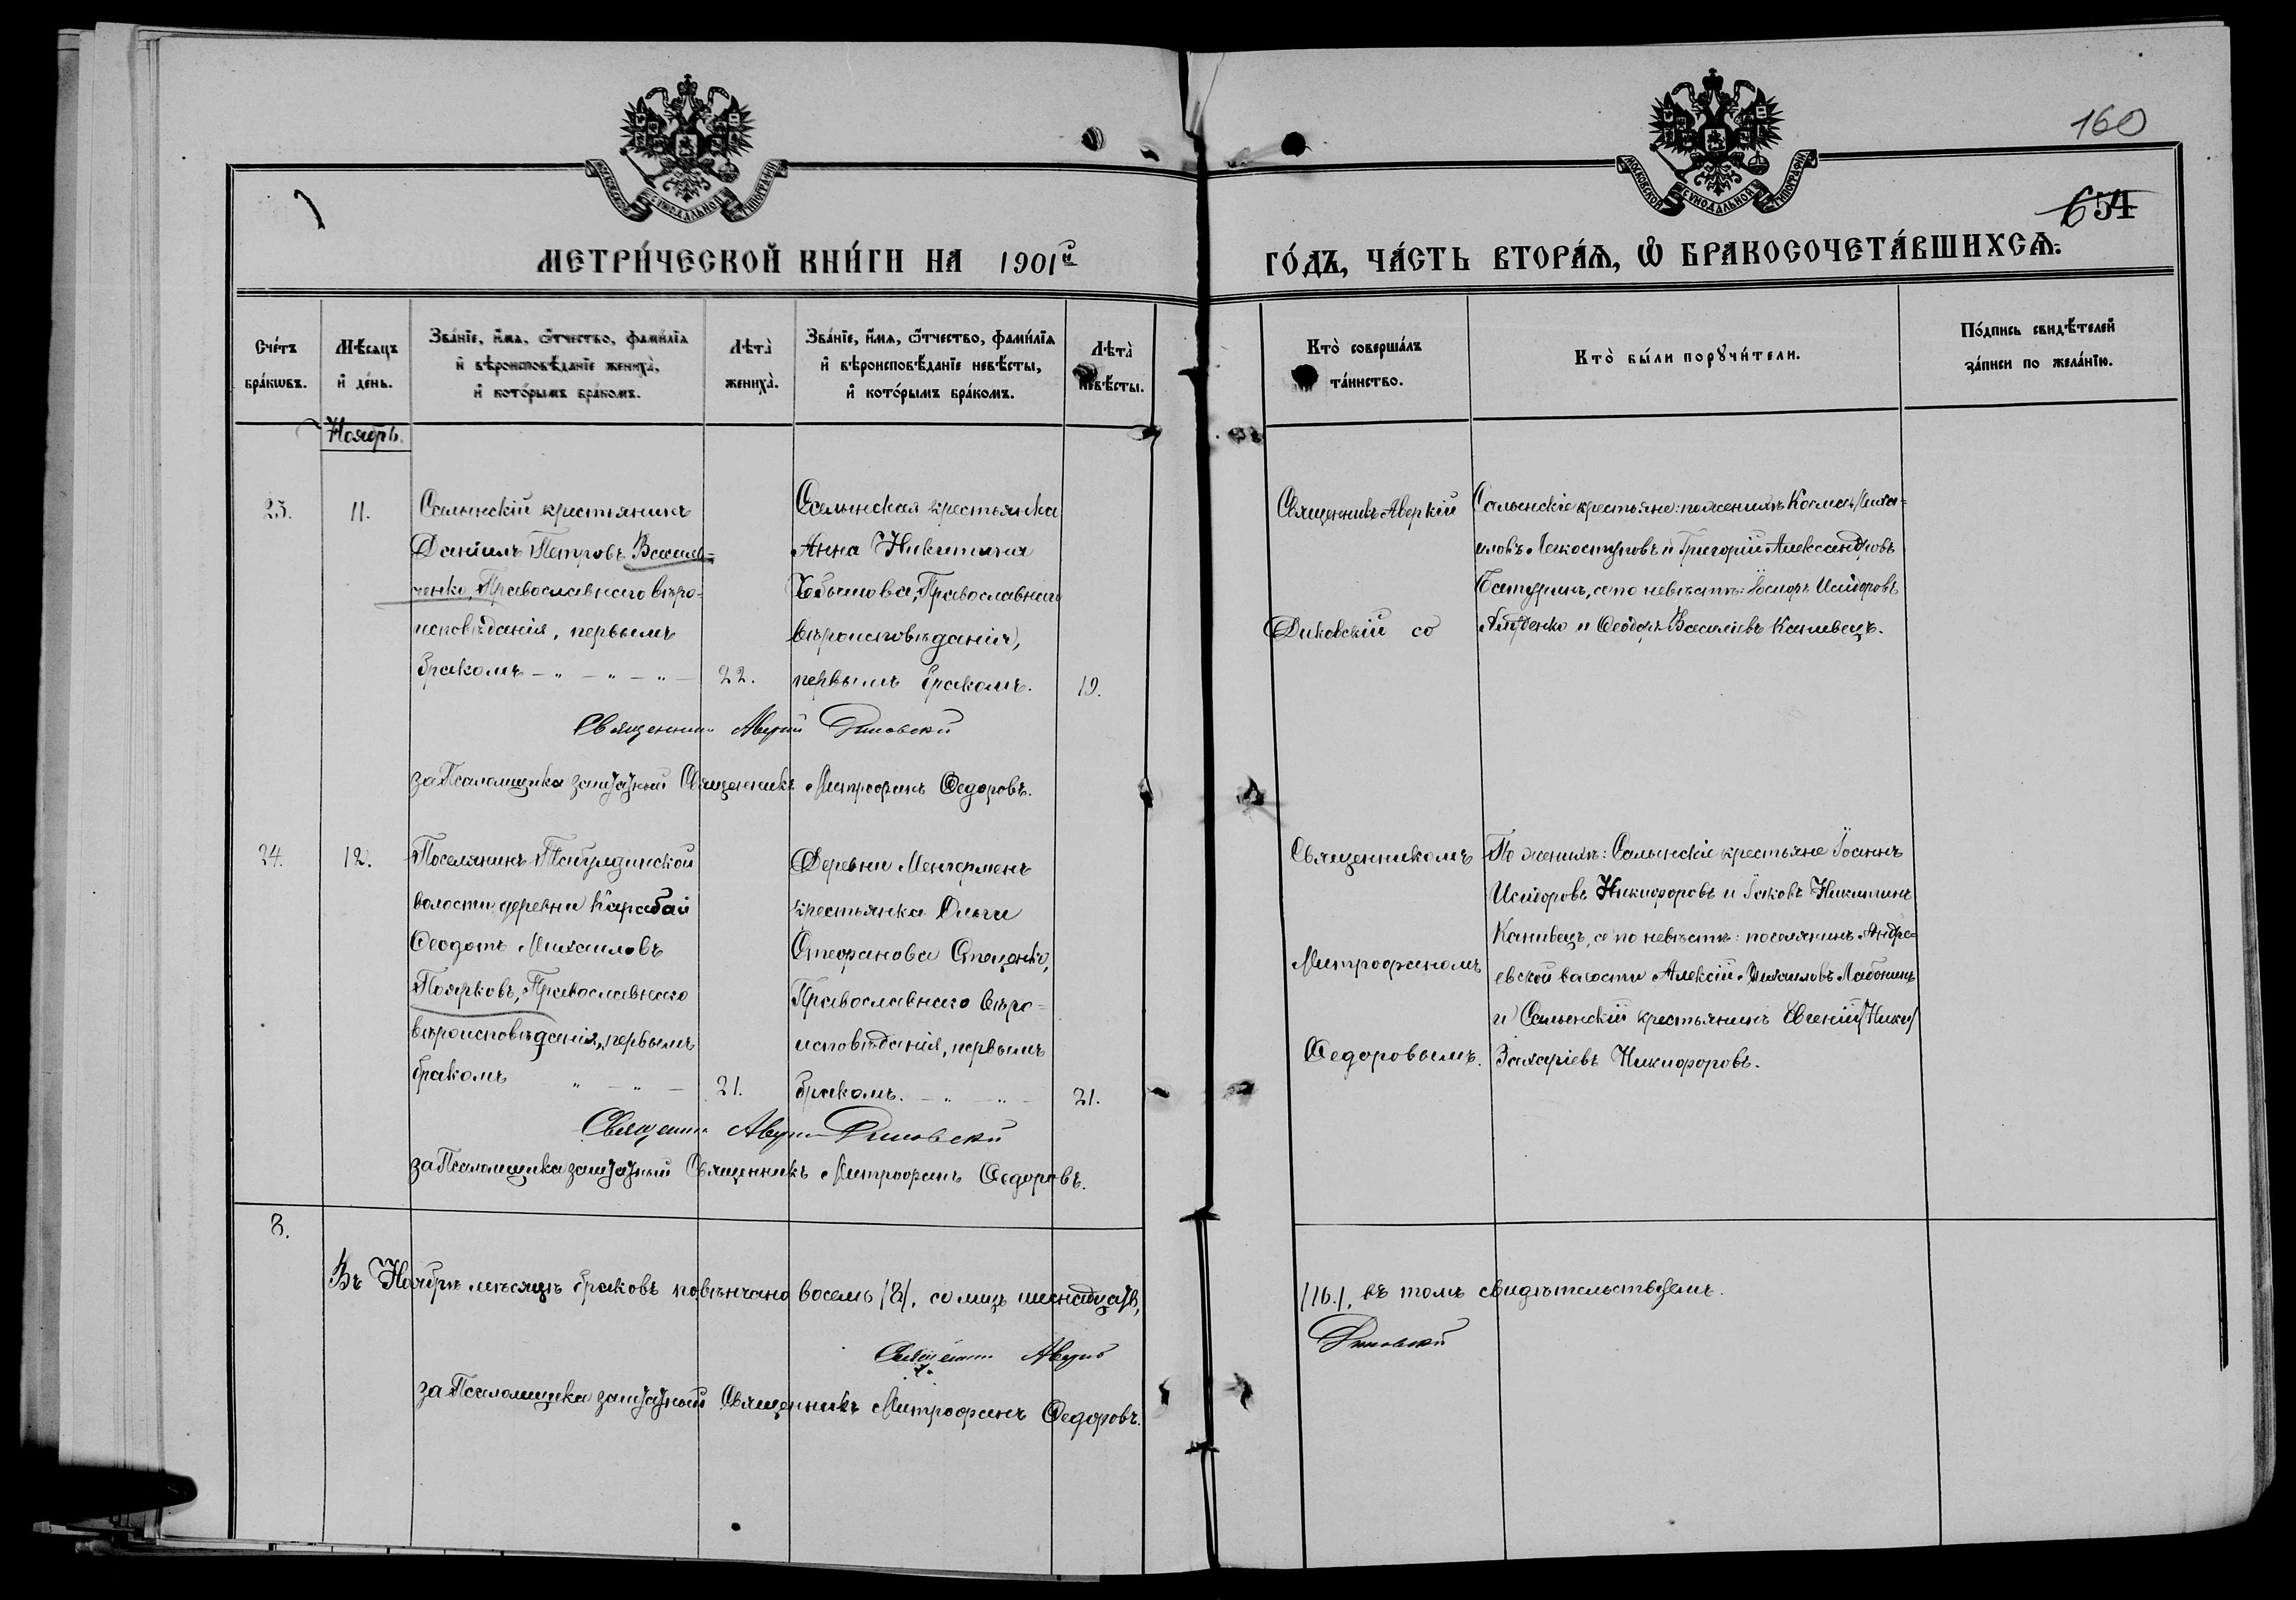 160
654
МОСКОВСКОЙ СѴНОДАЛЬНОЙ ТИПОГРАФІИ
МОСКОВСКОЙ СѴНОДАЛЬНОЙ ТИПОГРАФІИ
МЕТРИ́ЧЕСКОЙ КНИ́ГИ НА 1901й ГО́ДЪ, ЧА́СТЬ ВТОРА́Ѧ, Ѡ҆ БРАКОСОЧЕТА́ВШИХСѦ.
Сче́тъ
бра́кѡвъ.
Мѣ́сяцъ
и҆ де́нь.
Зва́нїе, и҆́мѧ, ѻ҆́тчество, фами́лїѧ
и҆ вѣроисповѣ́данїе жениха̀,
и҆ кото́рымъ бра́комъ.
Лѣта̀
жениха̀.
Зва́нїе, и҆́мѧ, ѻ҆́тчество, фами́лїѧ
и҆ вѣроисповѣ́данїе невѣ́сты,
и҆ кото́рымъ бра́комъ.
Лѣта̀
невѣ́сты.
Кто̀ соверша́лъ
та́инство.
Кто̀ бы́ли порꙋчи́тели.
По́дпись свидѣ́телей
за́писи по жела́нїю.
Ноябрь
23.
11.
Сальнскій крестьянинъ
Даніилъ Петровъ Василь=
ченко, Православнаго вѣро-
исповѣданія, первымъ
бракомъ – „ – „ – „ –
22.
Сальнская крестьянка
Анна Никитина
Православнаго
вѣроисповѣданія,
первымъ бракомъ.
19.
Священникъ Аверкій
Диковскій со
Сальнскіе крестьяне: по женихѣ Косма Миха=
иловъ и Григорій Александровъ
Батуринъ, а по невѣстѣ: Іосифъ Исидоровъ
и Ѳеодоръ Василіевъ Канивецъ.
Священникъ Аверкій Диковскій
за Псаломщика заштатный Священникъ Митрофанъ Ѳедоровъ.
24.
12.
Поселянинъ
волости деревни Карабай
Ѳеодотъ Михаиловъ
Поярковъ, Православнаго
вѣроисповѣданія, первымъ
бракомъ „ – „ –
21.
Деревни Менгерменъ
крестьянка Ольга
Стефанова Стаценко,
Православнаго вѣро=
исповѣданія, первымъ
бракомъ. – „ – „ –
21.
Священникомъ
Митрофаномъ
Ѳедоровымъ.
По женихѣ: Сальнскіе крестьяне Іоаннъ
Исидоровъ Никифоровъ и Іаковъ Никитинъ
Канивецъ, а по невѣстѣ: поселянинъ Андре=
евской волости Алексій Михаиловъ
и Сальнскій крестьянинъ Евгеній
Захаріевъ Никифоровъ.
Священникъ Аверкій Диковскій
за Псаломщика заштатный Священникъ Митрофанъ Ѳедоровъ.
8.
Въ Ноябрѣ мѣсяцѣ браковъ повѣнчано восемь /8/, а лицъ шестнадцать, /16./, въ томъ свидѣтельствуемъ.
Священникъ Аверкій Диковскій
за Псаломщика заштатный Священникъ Митрофанъ Ѳедоровъ.